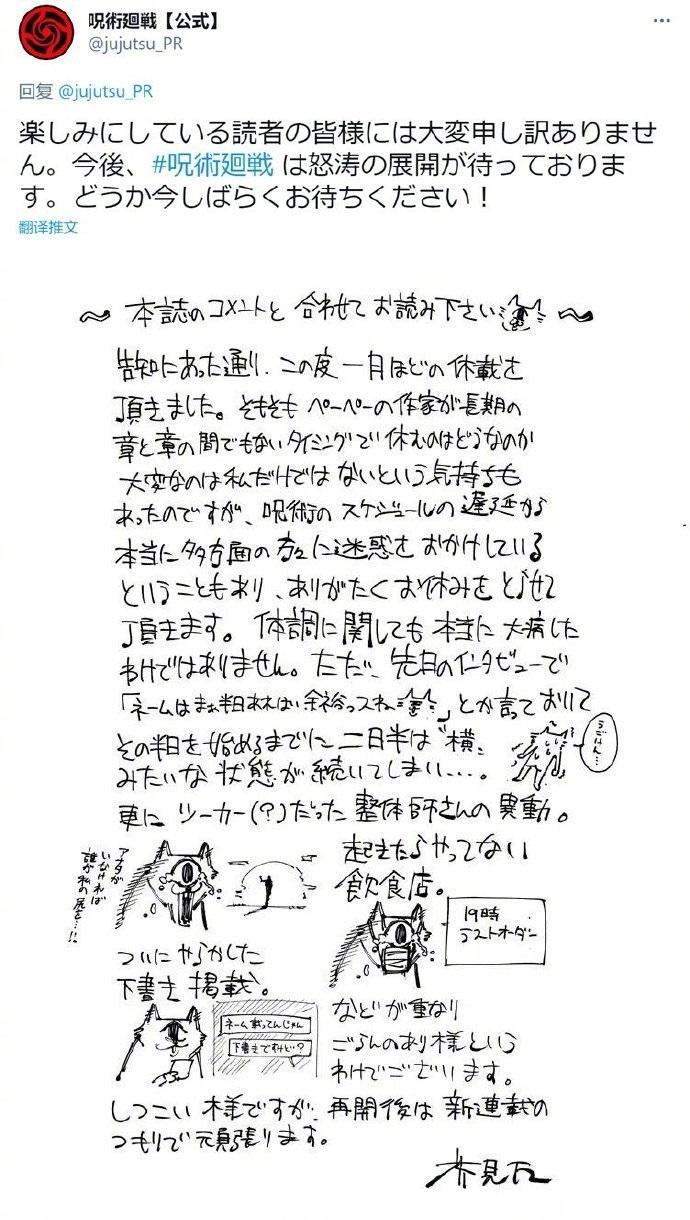 呪術廻戦【公式】
@jujutsu_PR
回复 @jujutsu_PR
楽しみにしている読者の皆様には大変申し訳ありませ
ん。今後、#呪術廻戦 は怒涛の展開が待っておりま
す。どうか今しばらくお待ちください！
翻译推文
〜 本誌のコメントと 合わせて お読み下さい 〜
告知にあった通り、この度 一月ほどの休載を
頂きました。そもそも ペーペーの作家が長期の
章と章の間でもないタイミングで休むのはどうなのか
大変なのは私だけでは ないという気持ちも
あったのですが、呪術の スケジュールの 遅延から
本当に多方面の方々に迷惑を おかけしている
ということもあり、ありがたく お休みを とらせて
頂きます。 体調に関しても 本当に 大病した
わけではありません。ただ、先日のインタビューで
「ネームはまぁ半日あれば 余裕っスね」とか言って おいて
その半日を始めるまでに 二日半は"横"
みたいな 状態が 続いてしまい…。
うごけん…
更に ツーカー(?)だった 整体師さんの 異動。
アナタが
いなければ
誰が私の尻を…!!
起きたらやってない
飲食店。
19時
ラストオーダー
ついに やらかした
下書き 掲載。
ネーム載ってんじゃん
下書きですけど?
などが重なり
ごらんのあり様という
わけでございます。
しつこい 様ですが、再開後は 新連載の
つもりで 頑張ります。
芥見下々